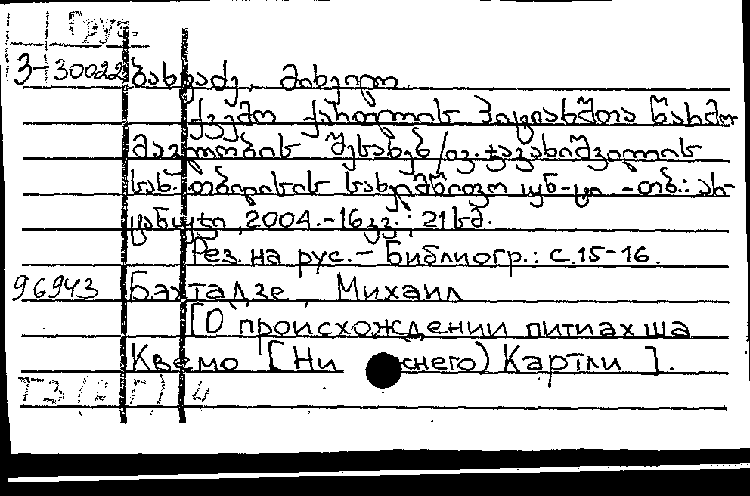 Груз.
3-30022 ბახტაძე, მიხეილ
ქვემო ქართლის პიტიახშთა წარმო
მავლობის შესახებ / ივ. ჯავახიშვილის
სახ. თბილისის სახელმწიფო უნ-ტი. - თბ.:
2004. - 16 გვ.; 21 სმ.
Рез. на рус. - Библиогр.: с. 15-16.
96943 Бахтадзе, Михаил
[О происхождении питиахша
Квемо [Нижнего) Картли ].
ТЗ (2г) 4